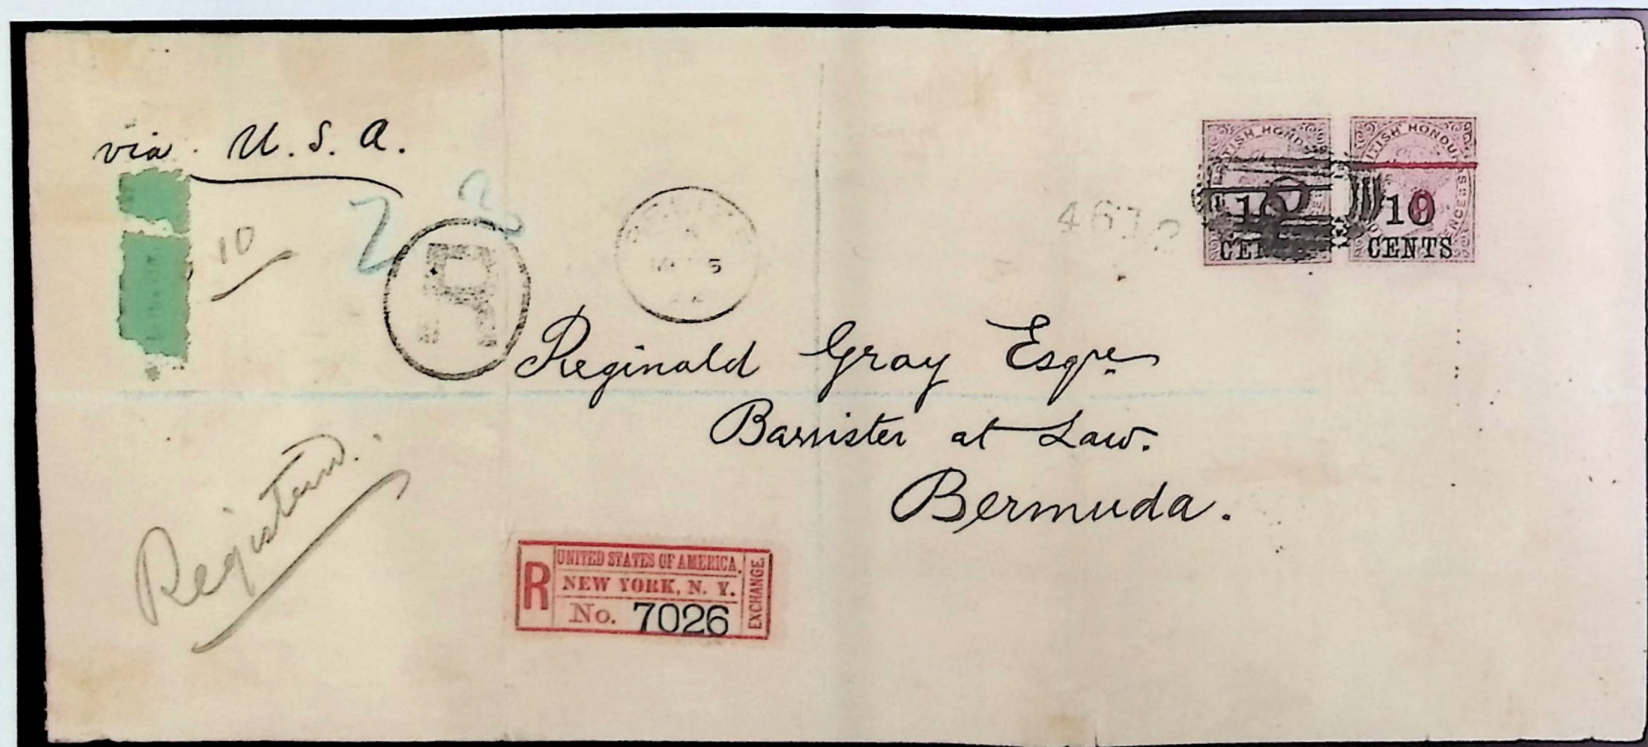 via U. S. A.
10
7
R
4612
BRITISH HONDU
10
CENTS
BRITISH HONDURAS
10
CENTS
Reginald Gray Esqre
Barrister at Law.
Bermuda.
Registered.
R
UNITED STATES OF AMERICA.
NEW YORK, N. Y.
No. 7026
EXCHANGE.